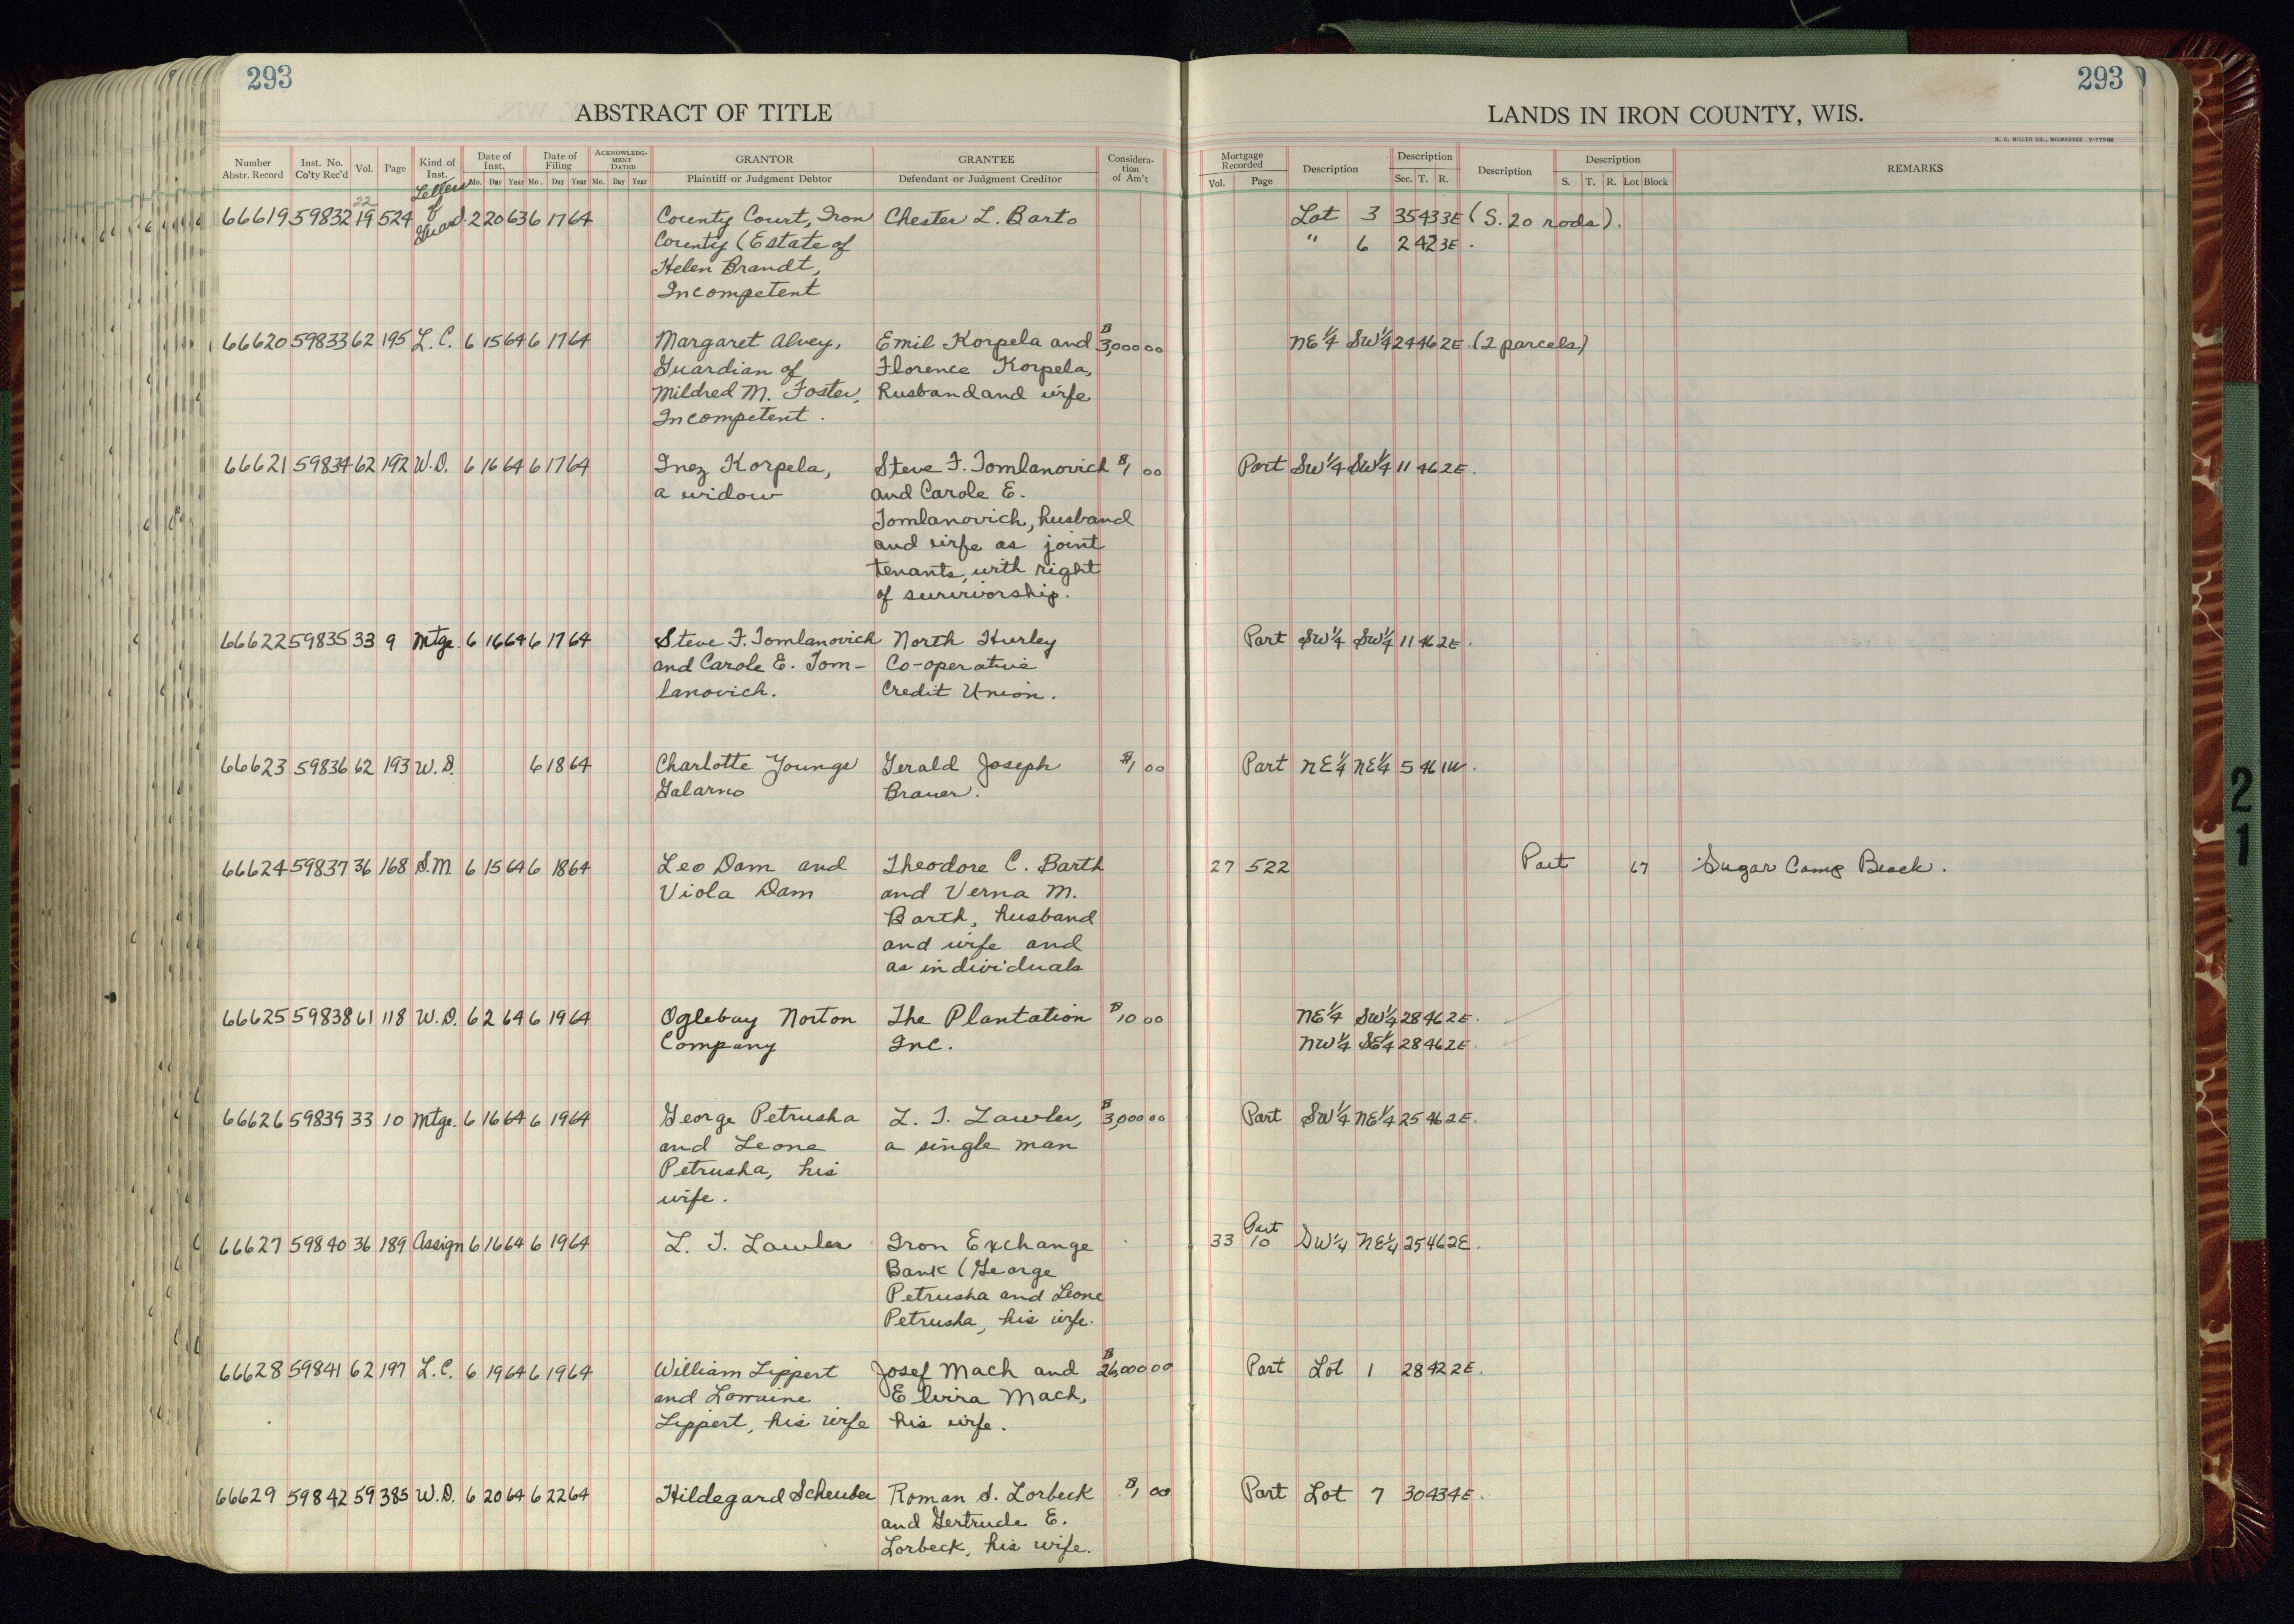 293
ABSTRACT OF TITLE
Number Abstr. Record | Inst. No. Co'ty Rec'd | Vol. | Page | Kind of Inst. | Date of Inst. Mo. Day Year | Date of Filing Mo. Day Year | ACKNOWLEDGMENT DATED Mo. Day Year | GRANTOR Plaintiff or Judgment Debtor | GRANTEE Defendant or Judgment Creditor | Consideration of Am't
293
LANDS IN IRON COUNTY, WIS.
H. C. MILLER CO., MILWAUKEE Y-77062
Mortgage Recorded Vol. Page | Description | Description Sec. T. R. | Description | Description S. T. R. Lot Block | REMARKS
Letters
22
66619 59832 19 524 of Guard. 2 20 63 6 17 64 County Court, Iron Chester L. Barto Lot 3 35 43 3E (S. 20 rods).
County (Estate of " 6 2 42 3E.
Helen Brandt,
Incompetent
66620 59833 62 195 L.C. 6 15 64 6 17 64 Margaret Alvey, Emil Korpela and $3,000 00 NE 1/4 SW 1/4 24 46 2E. (2 parcels)
Guardian of Florence Korpela,
Mildred M. Foster, Husband and wife
Incompetent.
66621 59834 62 192 W.D. 6 16 64 6 17 64 Inez Korpela, Steve F. Tomlanovich $1 00 Part SW 1/4 SW 1/4 11 46 2E.
a widow and Carole E.
Tomlanovich, husband
and wife as joint
tenants, with right
of survivorship.
66622 59835 33 9 Mtge. 6 16 64 6 17 64 Steve F. Tomlanovich North Hurley Part SW 1/4 SW 1/4 11 46 2E.
and Carole E. Tom- Co-operative
lanovich. Credit Union.
66623 59836 62 193 W.D. 6 18 64 Charlotte Youngs Gerald Joseph $1 00 Part NE 1/4 NE 1/4 5 46 1W.
Galarno Brauer.
66624 59837 36 168 S.M 6 15 64 6 18 64 Leo Dam and Theodore C. Barth 27 522 Part 67 Sugar Camp Beach.
Viola Dam and Verna M.
Barth, husband
and wife and
as individuals
66625 59838 61 118 W.D. 6 2 64 6 19 64 Oglebay Norton The Plantation $10 00 NE 1/4 SW 1/4 28 46 2E.
Company Inc. NW 1/4 SE 1/4 28 46 2E.
66626 59839 33 10 Mtge. 6 16 64 6 19 64 George Petrusha L. T. Lawler, $3,000 00 Part SW 1/4 NE 1/4 25 46 2E.
and Leone a single man
Petrusha, his
wife.
66627 59840 36 189 Assign 6 16 64 6 19 64 L. T. Lawler Iron Exchange 33 10 Part SW 1/4 NE 1/4 25 46 2E.
Bank (George
Petrusha and Leone
Petrusha, his wife.
66628 59841 62 197 L.C. 6 19 64 6 19 64 William Lippert Josef Mach and $26,000 00 Part Lot 1 28 42 2E.
and Lorraine Elvira Mach,
Lippert, his wife his wife.
66629 59842 59 385 W.D. 6 20 64 6 22 64 Hildegard Scheuber Roman S. Lorbeck $1 00 Part Lot 7 30 43 4E.
and Gertrude E.
Lorbeck, his wife.
21